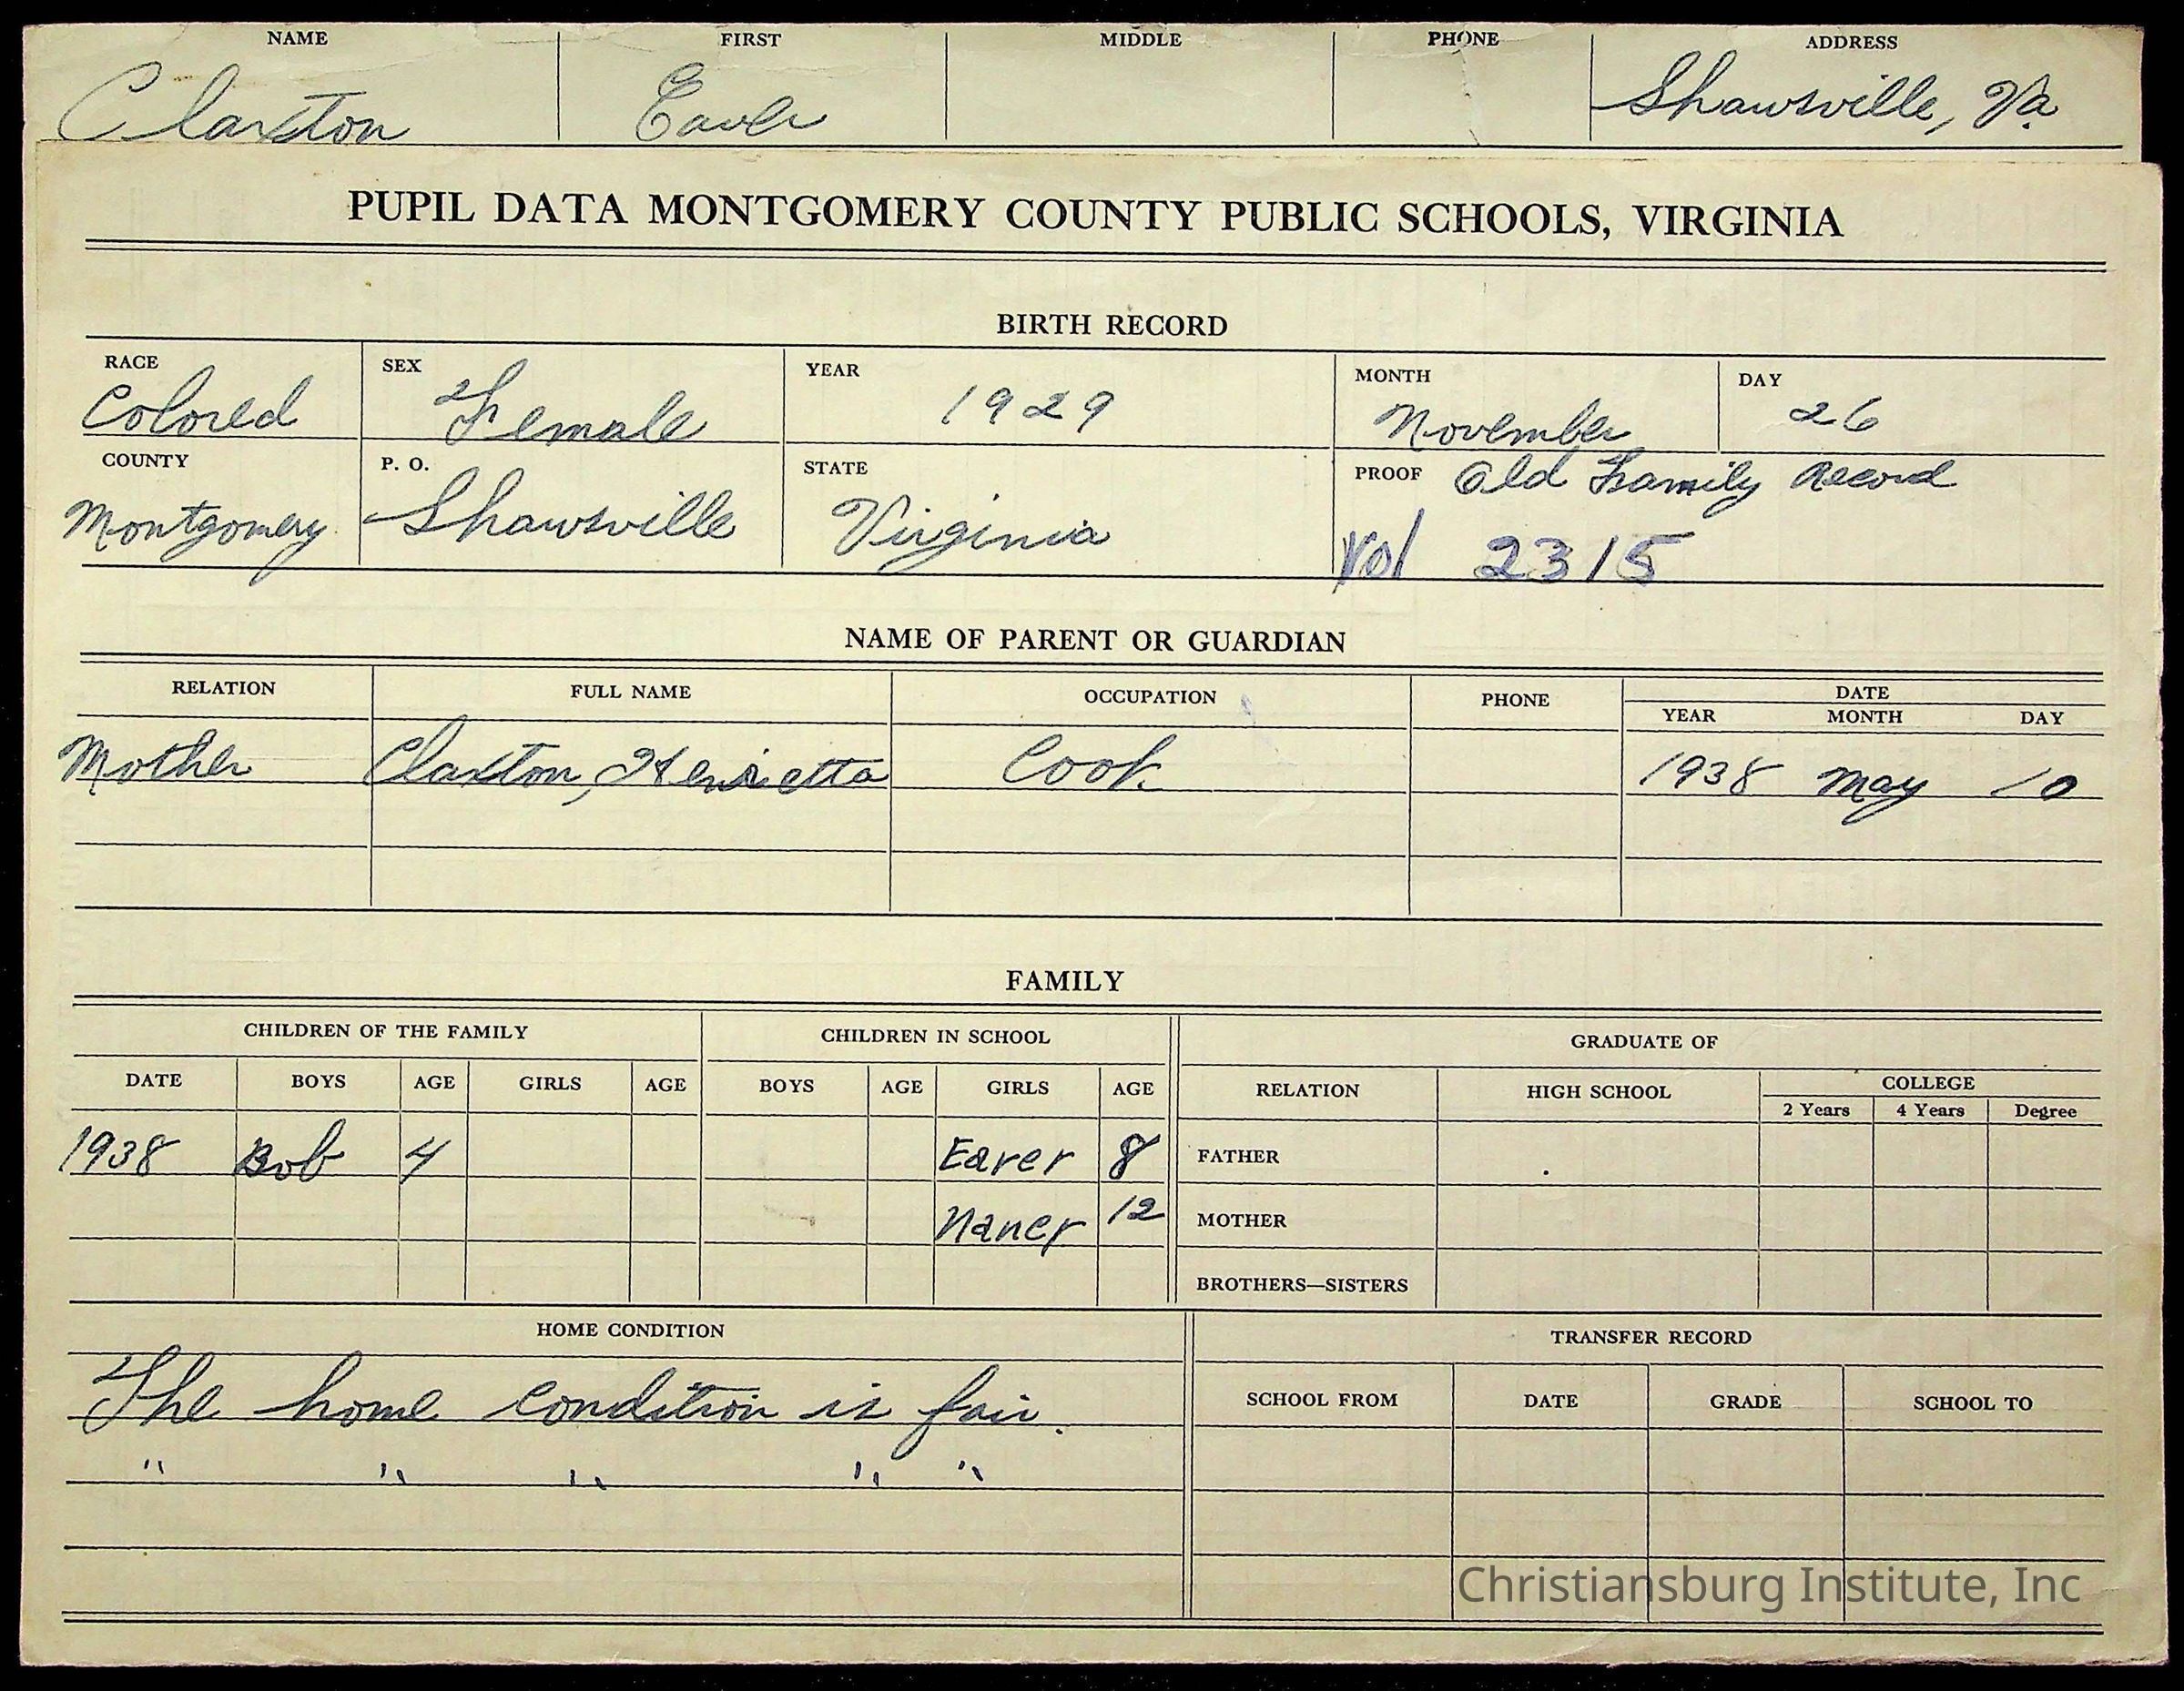 NAME FIRST MIDDLE PHONE ADDRESS
Claxton Eaver Shawsville, Va.
PUPIL DATA MONTGOMERY COUNTY PUBLIC SCHOOLS, VIRGINIA
BIRTH RECORD
RACE SEX YEAR MONTH DAY
Colored Female 1929 November 26
COUNTY P. O. STATE PROOF Old Family Record
Montgomery Shawsville Virginia Vol 2315
NAME OF PARENT OR GUARDIAN
RELATION FULL NAME OCCUPATION PHONE DATE
YEAR MONTH DAY
Mother Claxton, Henrietta Cook 1938 May 10
FAMILY
CHILDREN OF THE FAMILY CHILDREN IN SCHOOL GRADUATE OF
DATE BOYS AGE GIRLS AGE BOYS AGE GIRLS AGE RELATION HIGH SCHOOL COLLEGE
2 Years 4 Years Degree
1938 Bob 4 Eaver 8 FATHER
Nancy 12 MOTHER
BROTHERS—SISTERS
HOME CONDITION TRANSFER RECORD
The home condition is fair.
" " " " "
SCHOOL FROM DATE GRADE SCHOOL TO
Christiansburg Institute, Inc